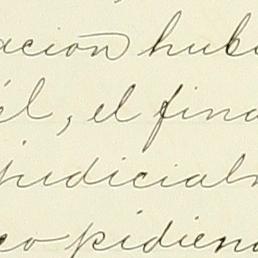 acion hub
él, el fina
judicial
co pidien